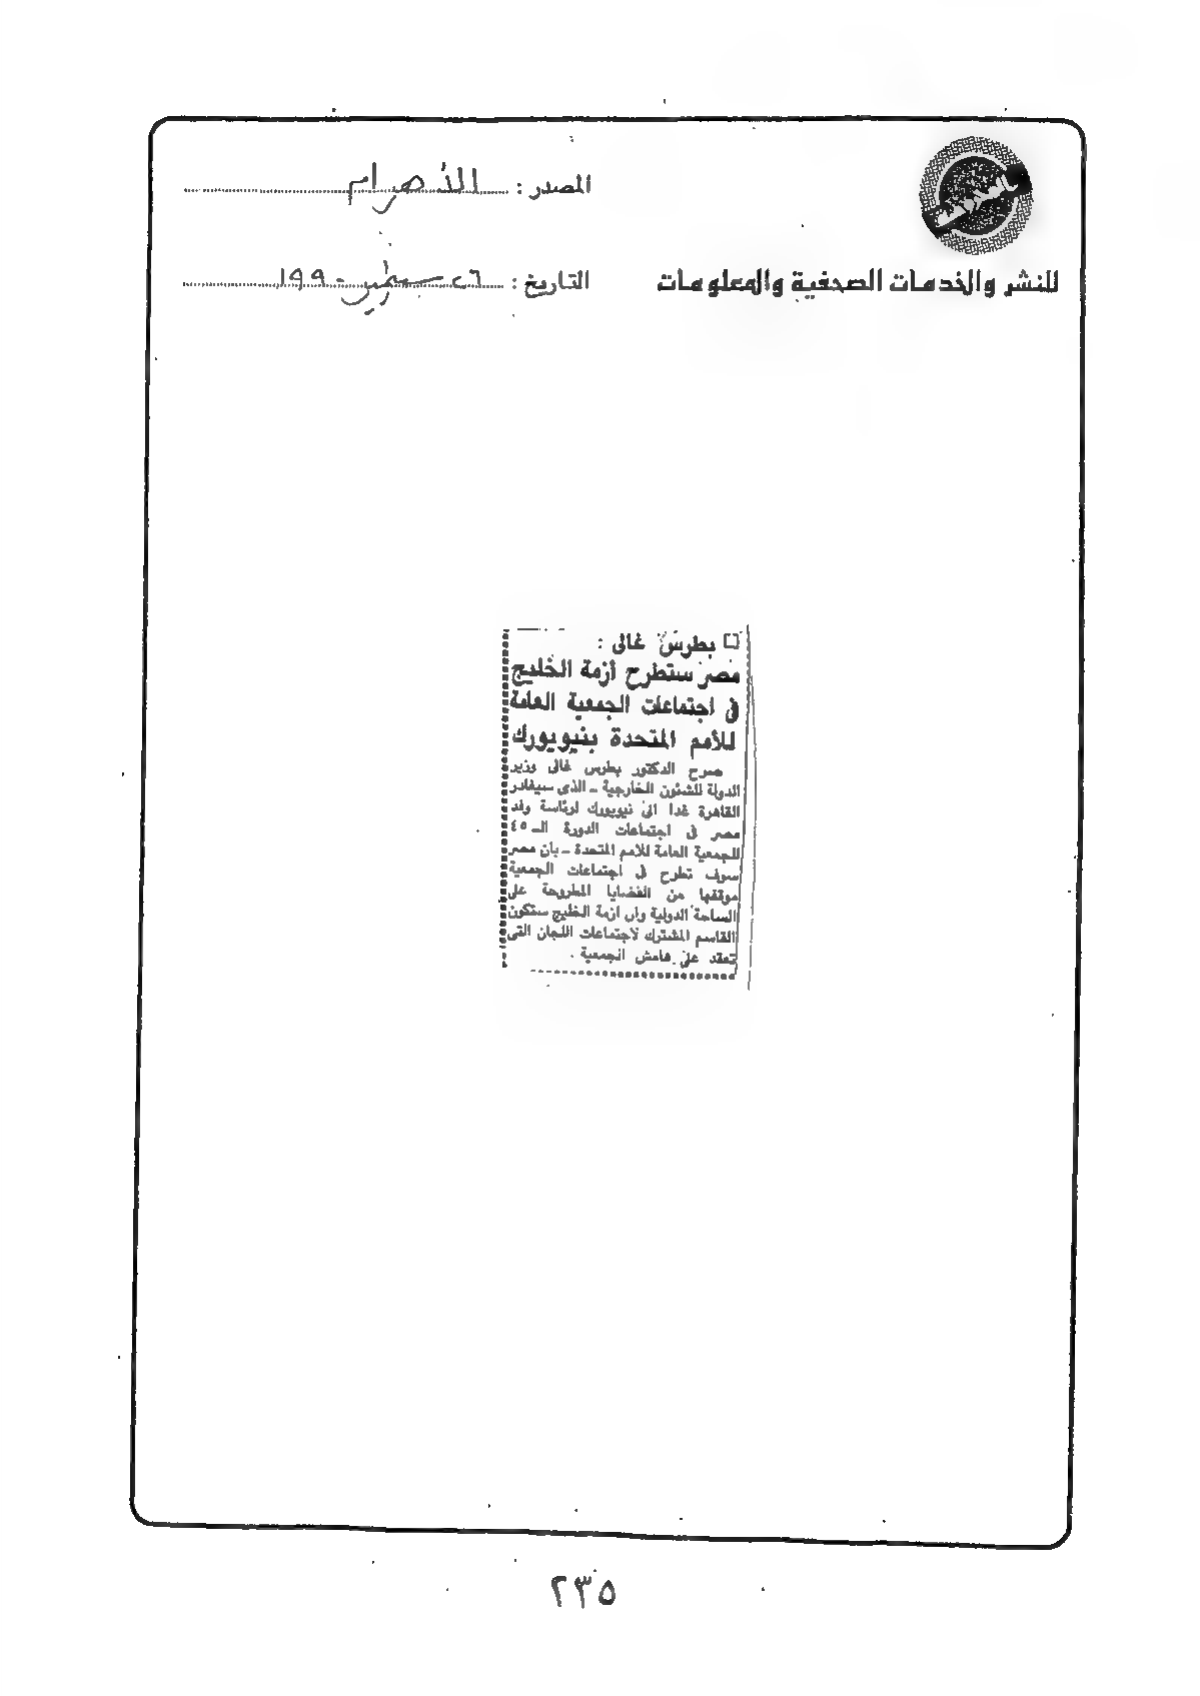 المصدر : الأهرام
للنشر والخدمات الصحفية والمعلومات
التاريخ : ٢٦ سبتمبر ١٩٩٠
بطرس غالى :
مصر ستطرح أزمة الخليج
فى اجتماعات الجمعية العامة
للأمم المتحدة بنيويورك
صرح الدكتور بطرس غالى وزير
الدولة للشئون الخارجية ـ الذى سيغادر
القاهرة غدا الى نيويورك لرئاسة وفد
مصر فى اجتماعات الدورة الـ ٤٥
للجمعية العامة للأمم المتحدة ـ بان مصر
سوف تطرح فى اجتماعات الجمعية
موقفها من القضايا المطروحة على
الساحة الدولية وان ازمة الخليج ستكون
القاسم المشترك لاجتماعات اللجان التى
تعقد على هامش الجمعية .
٢٣٥